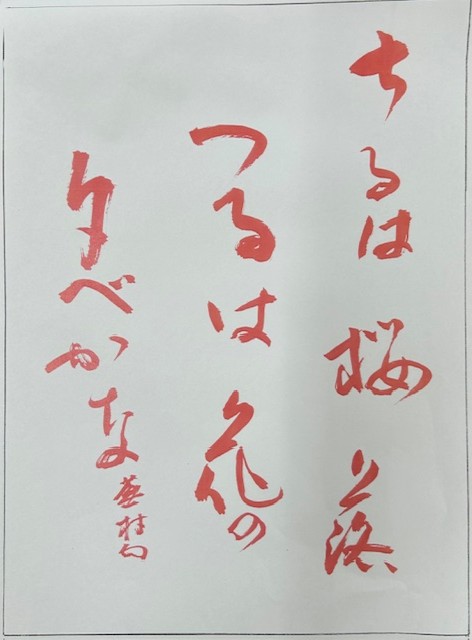 ちるは桜落
つるは花の
夕べかな
蕪村句